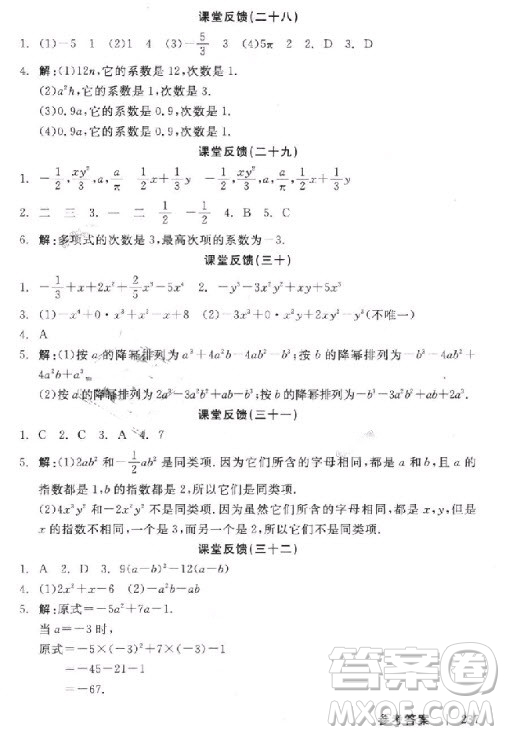 课堂反馈(二十八)
1. (1)-5 1 (2)1 4 (3)-5/3 3 (4)5π 2. D 3. D
4. 解:(1)12n,它的系数是12,次数是1.
(2)a²h,它的系数是1,次数是3.
(3)0.9a,它的系数是0.9,次数是1.
(4)0.9a,它的系数是0.9,次数是1.
课堂反馈(二十九)
1. -1/2, xy²/3, a, a/π 1/2x+1/3y -1/2, xy²/3, a, a/π, 1/2x+1/3y
2. 二 三 3. 一 二 1/2 -1/2 4. B 5. D
6. 解:多项式的次数是3,最高次项的系数为-3.
课堂反馈(三十)
1. -1/3+x+2x²+2/5x³-5x⁴ 2. -y⁵-3x²y²+xy+x³
3. (1)-x⁴+0·x³+x²-x+8 (2)-x⁴y+xy+0·y²(不唯一)
4. A
5. 解:(1)按a的降幂排列为a³+4a²b-4ab²-b³;按b的降幂排列为-b³-4ab²+
4a²b+a³.
(2)按a的降幂排列为2a³-3a²b+2ab²-b³;按b的降幂排列为-b³+2ab²-3a²b+2a³.
课堂反馈(三十一)
1. C 2. C 3. A 4. 7
5. 解:(1)2ab²和-1/2ab²是同类项. 因为它们所含的字母相同,都是a,b,且a的
指数都是1,b的指数都是2,所以它们是同类项.
(2)4x³y²和-2x²y²不是同类项. 因为它们所含的字母虽然相同,都是x,y,但是
x的指数不相同,一个是3,而另一个是2,所以它们不是同类项.
课堂反馈(三十二)
1. A 2. D 3. 9(a-b)²-12(a-b)
4. (1)2x²+x-6 (2)-a²b-ab
5. 解:原式=-5a²+7a-1.
当a=-3时,
原式=-5×(-3)²+7×(-3)-1
=-45-21-1
=-67.
参考答案
答案圈